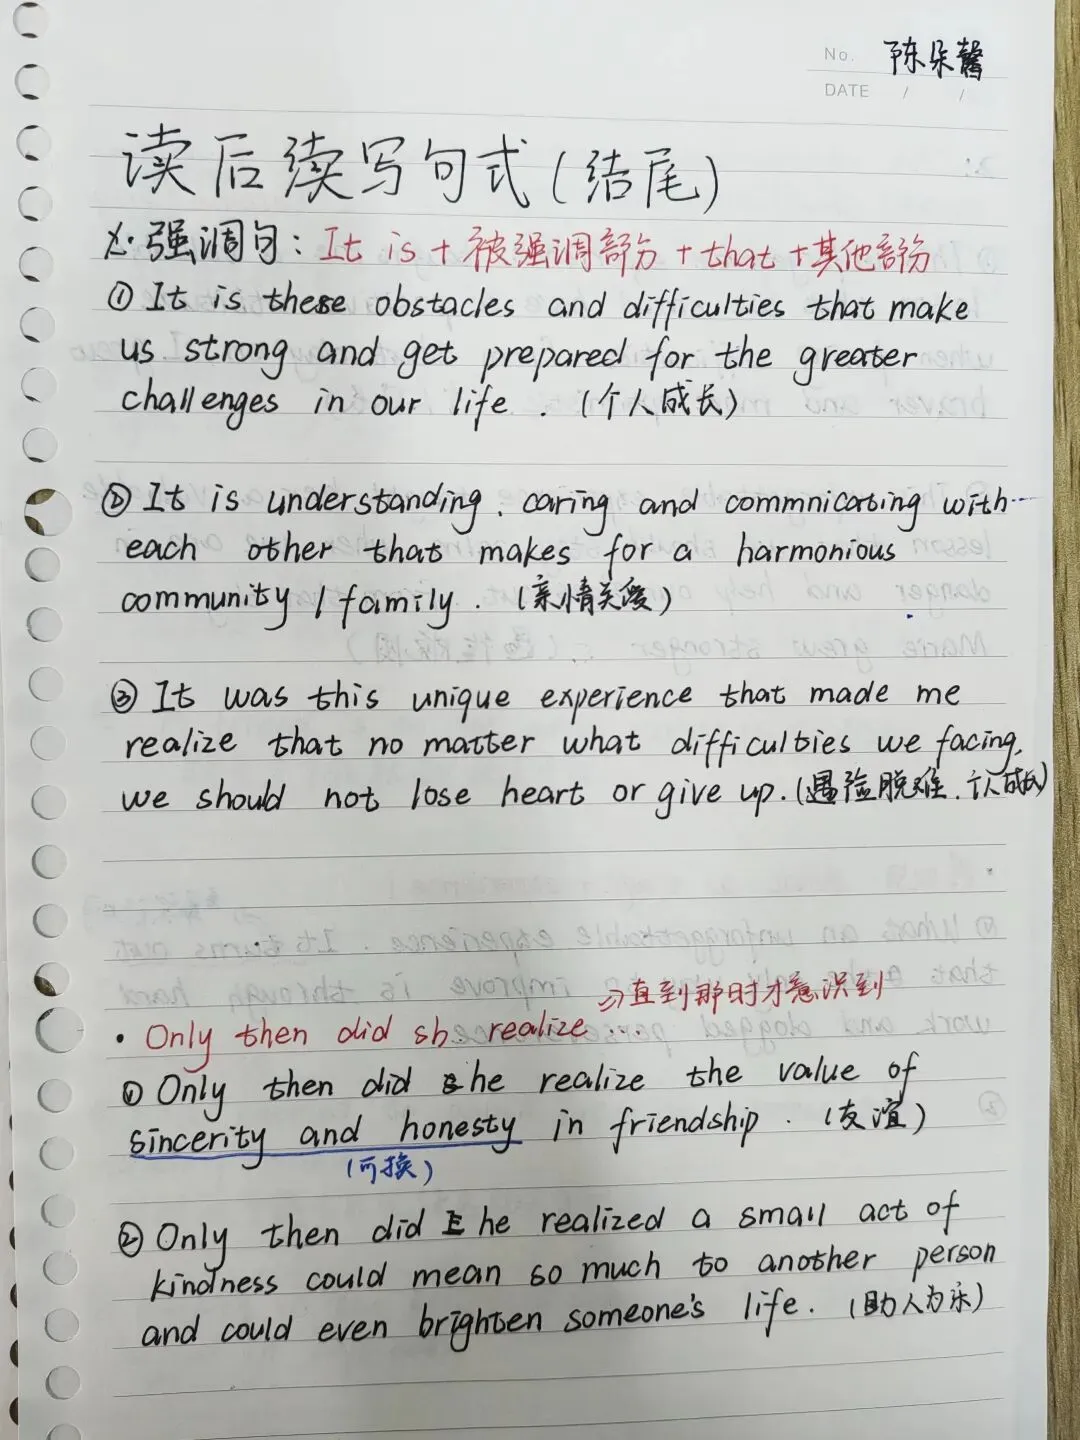 No. 陈朵馨
DATE / /
读后续写句式(结尾)
强调句: It is + 被强调部分 + that + 其他部分
① It is these obstacles and difficulties that make
us strong and get prepared for the greater
challenges in our life . (个人成长)
② It is understanding . caring and commnicating with
each other that makes for a harmonious
community / family . (亲情关爱)
③ It was this unique experience that made me
realize that no matter what difficulties we facing,
we should not lose heart or give up. (遇险脱难.个人成长)
⇒直到那时才意识到
· Only then did sh realize ...
① Only then did he realize the value of
sincerity and honesty in friendship . (友谊)
(可换)
② Only then did he realized a small act of
kindness could mean so much to another person
and could even brighten someone's life . (助人为乐)